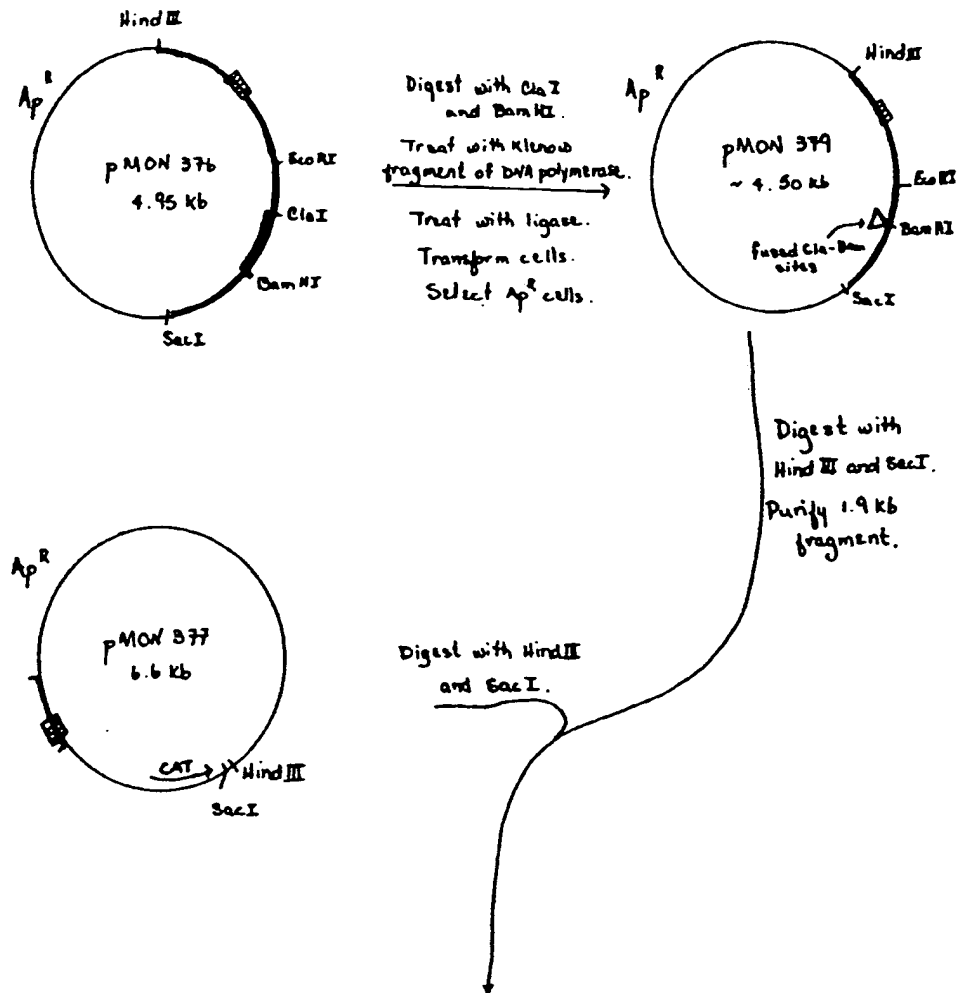 Hind III
Ap R
pMON 376
4.95 kb
EcoRI
ClaI
BamHI
SacI
Digest with ClaI
and BamHI.
Treat with Klenow
fragment of DNA polymerase.
Treat with ligase.
Transform cells.
Select ApR cells.
Ap R
Hind III
pMON 379
~ 4.50 kb
EcoRI
BamHI
fused Cla-Bam
sites
SacI
Digest with
Hind III and SacI.
Purify 1.9 kb
fragment.
Ap R
pMON 377
6.6 kb
CAT
Hind III
SacI
Digest with Hind III
and SacI.